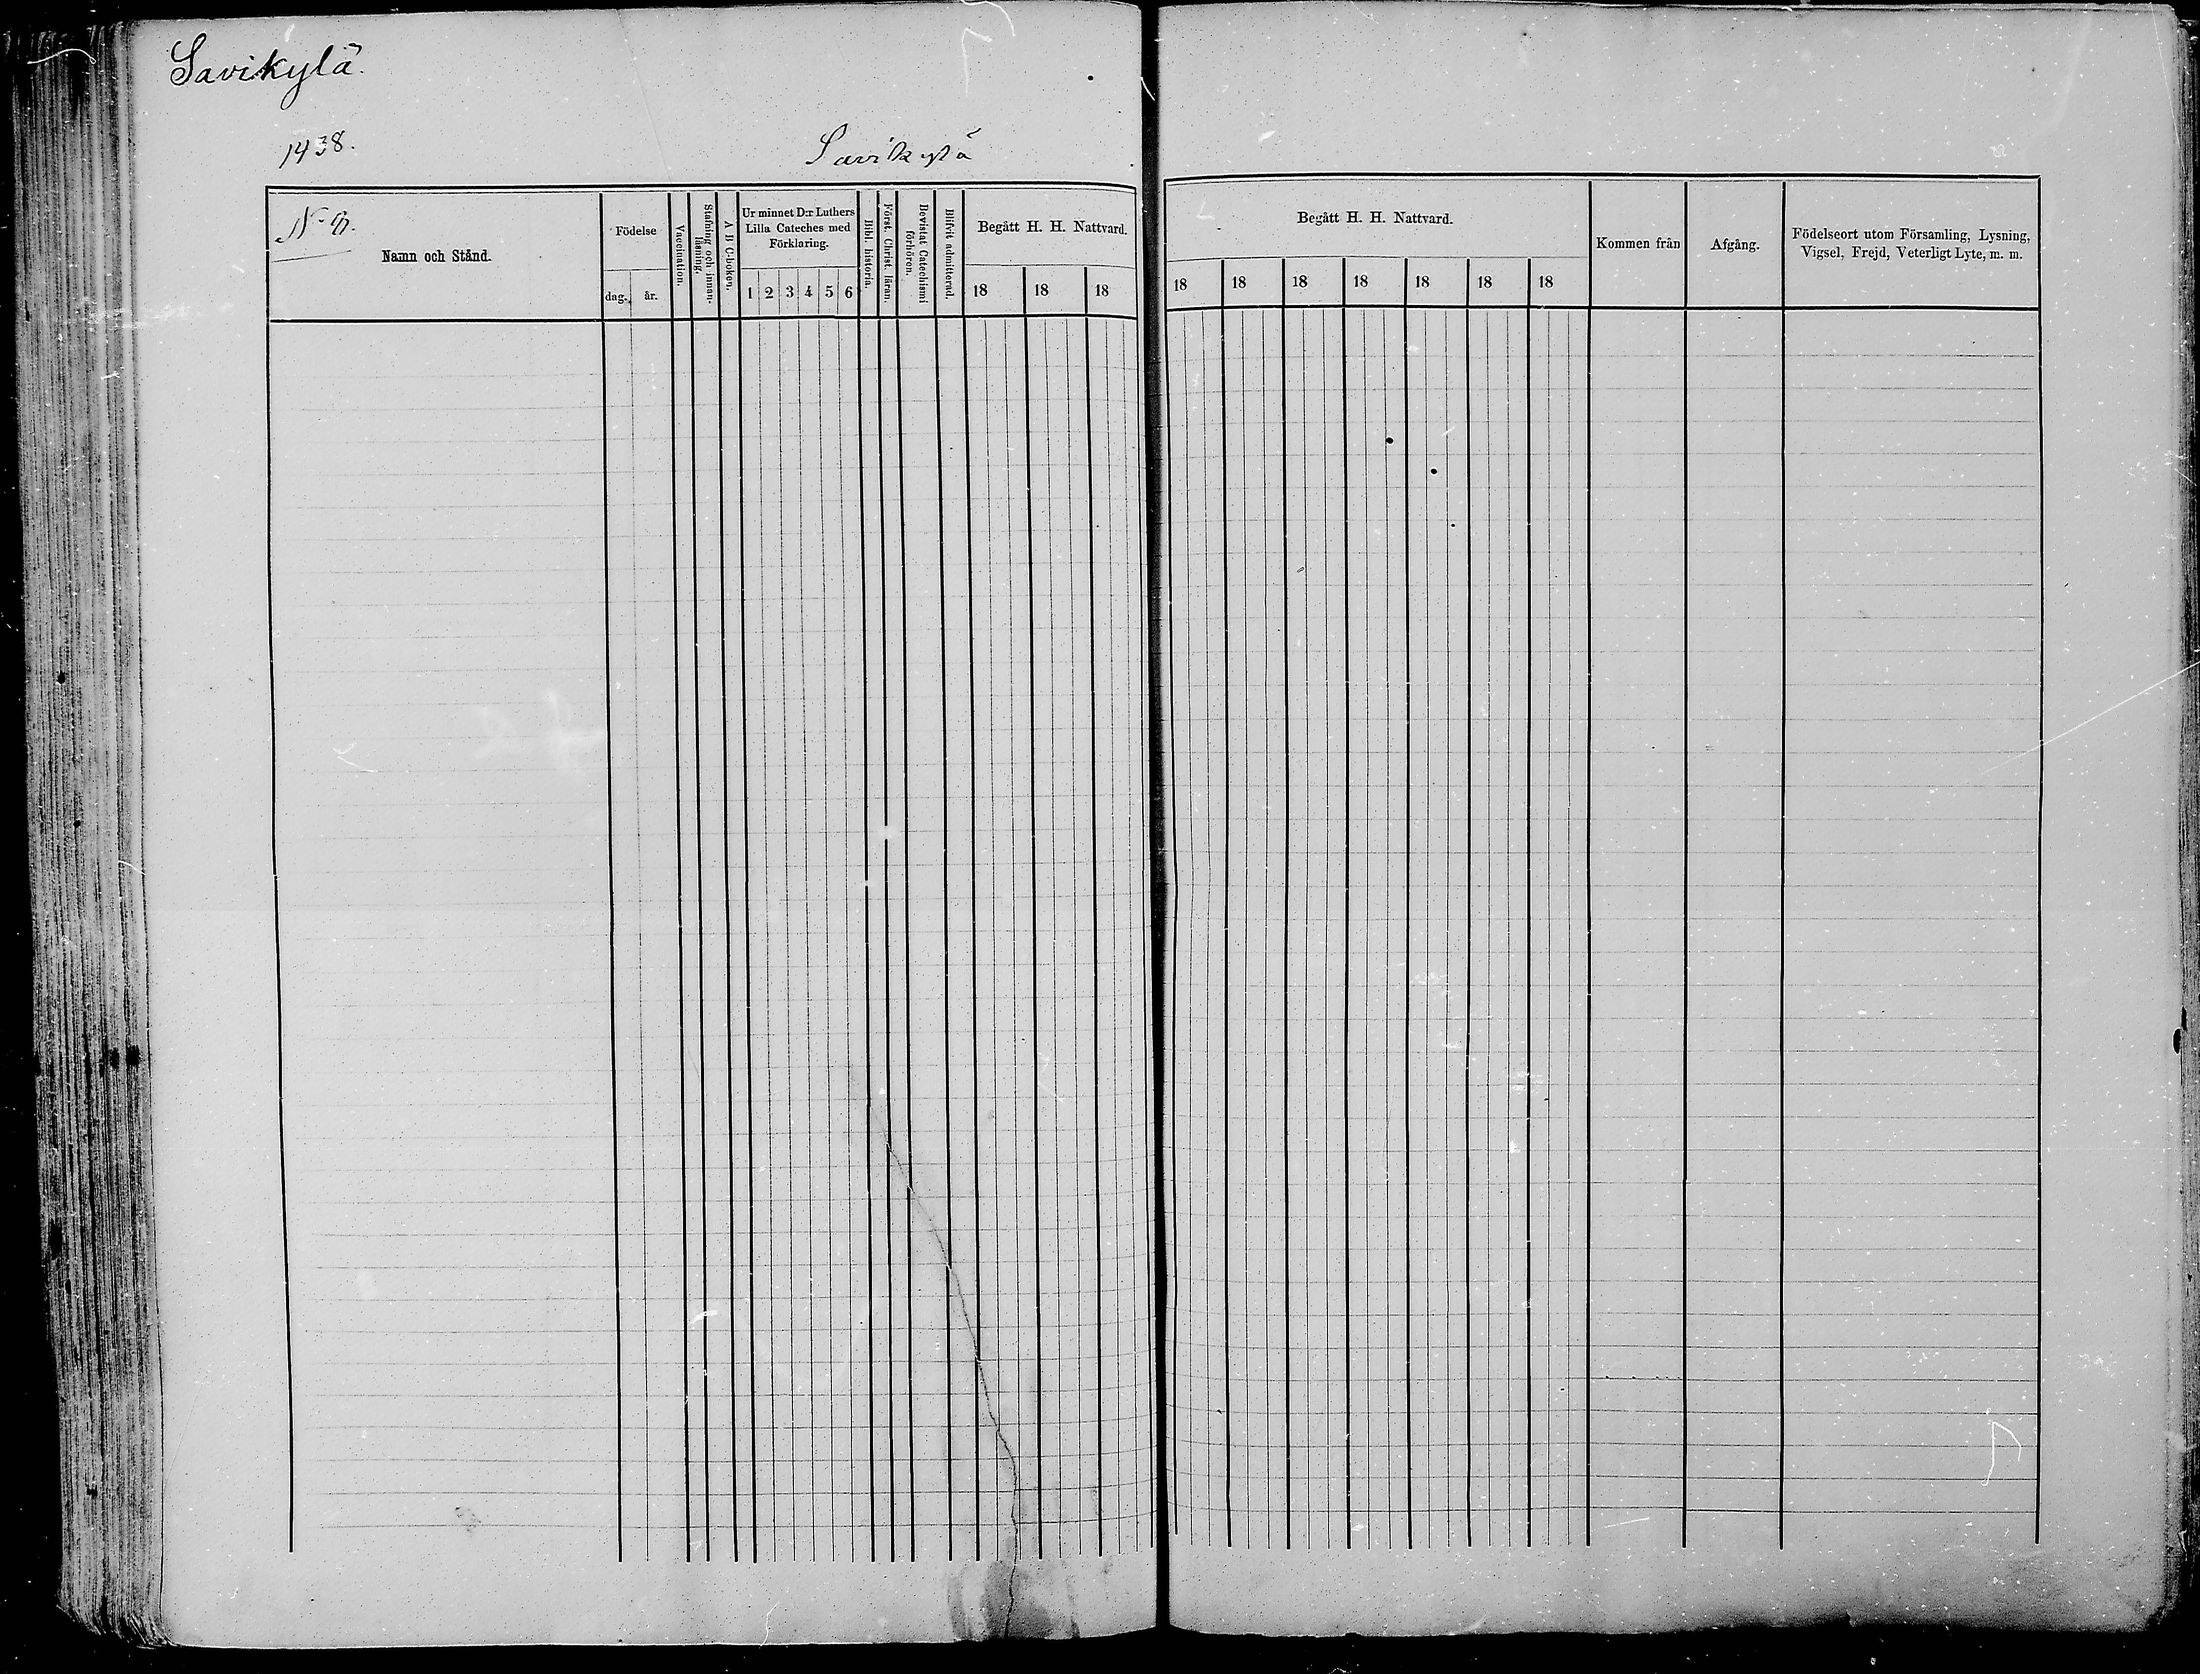 Savikylä.
1438.
Savikylä
Namn och Stånd.
Födelse
dag.
år.
Vaccination.
Stafning och innan-
läsning.
A B C-boken.
Ur minnet D:r Luthers
Lilla Cateches med
Förklaring.
1 2 3 4 5 6
Bibl. historia.
Först. Christ. läran.
Bevistat Catechismi
förhören.
Blifvit admitterad.
Begått H. H. Nattvard.
18 18 18
Begått H. H. Nattvard.
18 18 18 18 18 18 18
Kommen från
Afgång.
Födelseort utom Församling, Lysning,
Vigsel, Frejd, Veterligt Lyte, m. m.